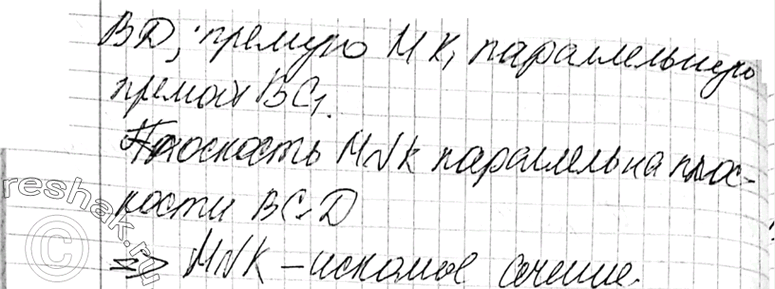 BD; прямую MK, параллельную
прямой BC₁.
Плоскость MNK параллельна плос-
кости BC₁D
=> MNK – искомое сечение.
reshak.ru
©